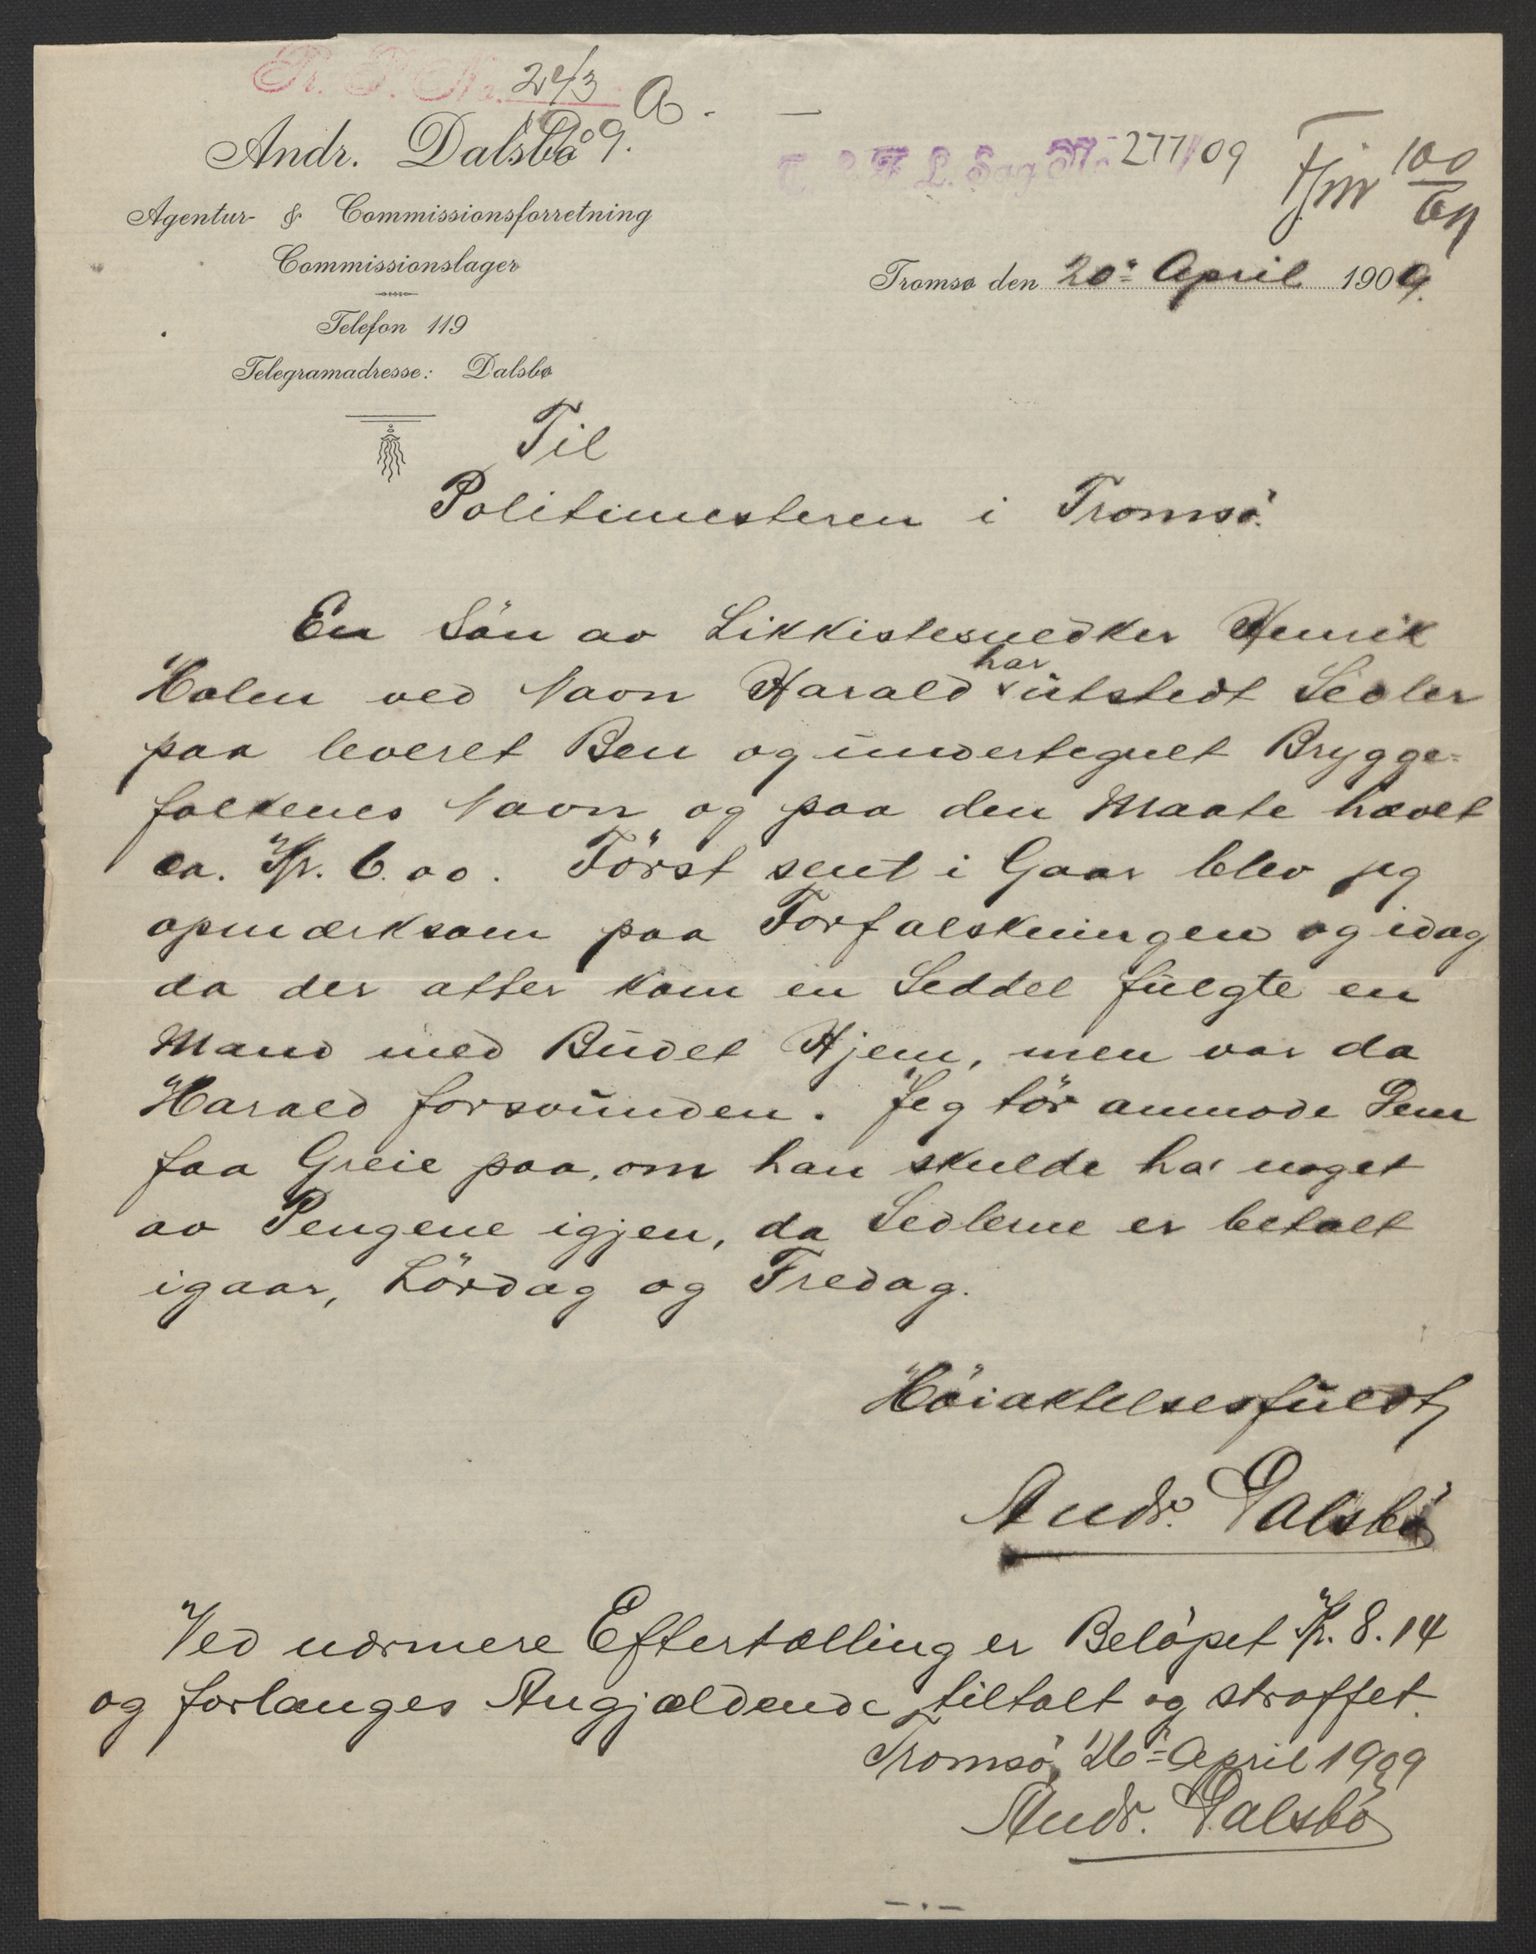 243 A.
09.
Andr. Dalsbø
Agentur- & Commissionsforretning
Commissionslager
Telefon 119
Telegramadresse: Dalsbø
L. Sag No 277/09
100
Tromsø den 20de April 1909.
Til
Politimesteren i Tromsö.
En Sön av Likkistesnedker Henrik
Holm ved Navn Harald har utstedt Sedler
paa leveret Ben og undertegnet Brygge-
folkenes Navn og paa den Maate hævet
ca. Kr. 6.00. Först sent i Gaar blev jeg
opmærksom paa Forfalskningen og idag
da der atter kom en Seddel fulgte en
Mand med Budet Hjem, men var da
Harald forsvunden. Jeg tör anmode Dem
faa Greie paa, om han skulde ha noget
av Pengene igjen, da Sedlerne er betalt
igaar, Lördag og Fredag.
Höiaktelsesfuldt
Andr. Dalsbö
Ved nærmere Eftertælling er Belöpet Kr. 8.14
og forlanges Angjældende tiltalt og straffet.
Tromsö, 26de April 1909
Andr. Dalsbö